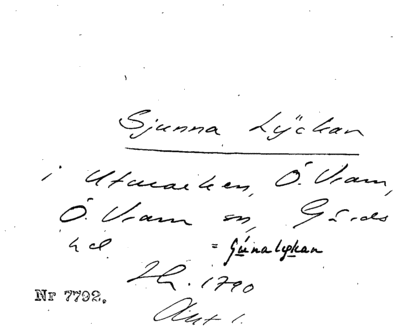 Sjunna Lÿckan
i Utmarken, Ö. Vram,
Ö. Vram sn, Gärds
hd = Gunalyckan
Lh. 1790
Akt 1.
Nr 7792.